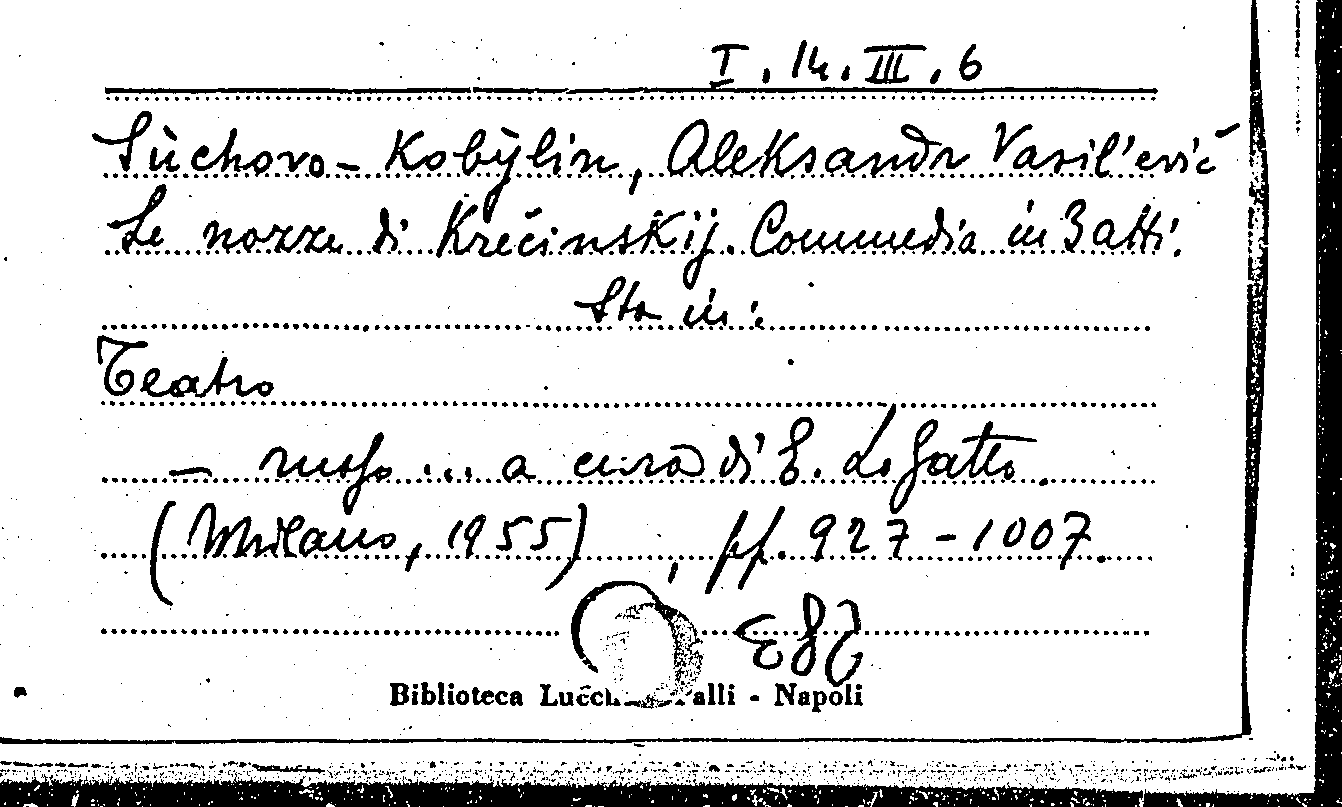 I. 14. III. 6
Sùchovo-Kobỳlin, Aleksandr Vasil'evič
Le nozze di Krečinskij. Commedia in 3 atti.
Sta in:
Teatro
— russo ... a cura di E. Lo Gatto.
(Milano, 1955), pp. 927-1007.
Biblioteca Lucch alli - Napoli